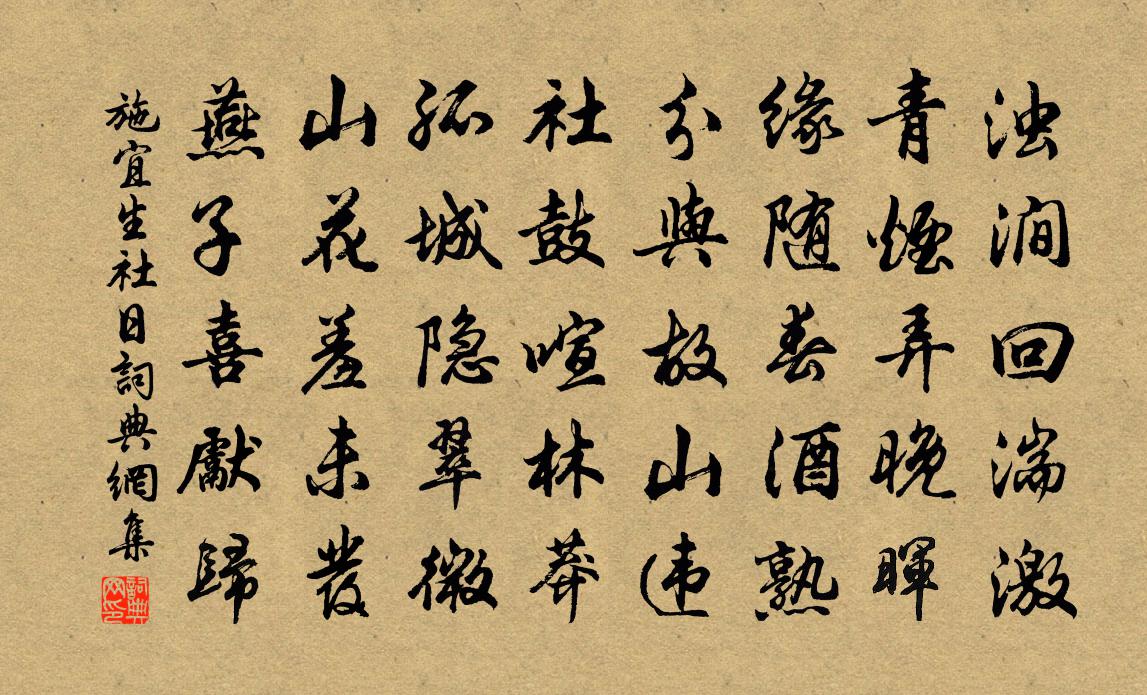 浊涧回湍激
青煙弄晚暉
缘随春酒熟
分與故山违
社鼓喧林莽
孤城隐翠微
山花羞未發
燕子喜獻歸
施宜生社日詞典網集
詞典网印